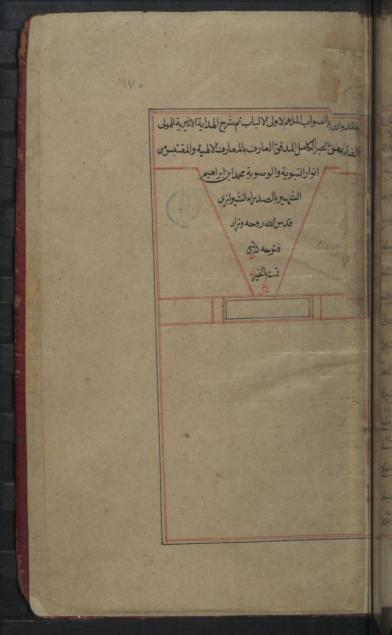 ٦٧٠
بالصواب الملهم لاولى الالباب تم شرح الهداية الاثيرية للمولى
الحبر الكامل المدقق العارف بالمعارف الالهية والمقتبس من
انوار النبوية والوصوية محمد ابن ابراهيم
الشهير بالصدر الشيرازى
قدس الله روحه وزاد
فتوحه
تمت بالخير